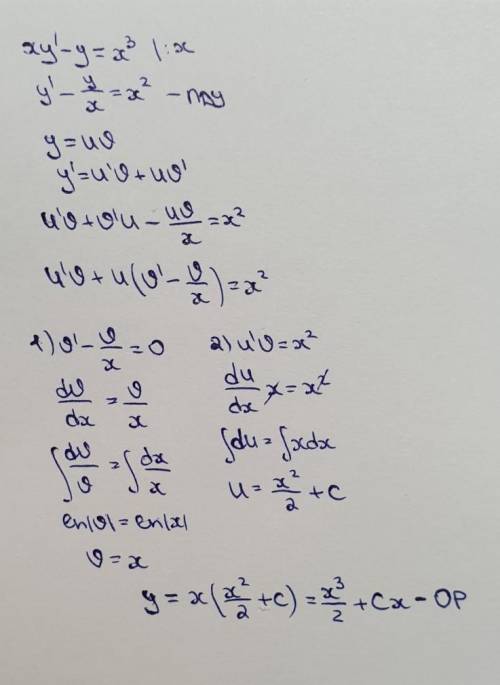 xy' - y = x³ |:x
y' - y/x = x² - ЛДУ
y = uv
y' = u'v + uv'
u'v + v'u - uv/x = x²
u'v + u(v' - v/x) = x²
1) v' - v/x = 0
dv/dx = v/x
∫dv/v = ∫dx/x
ln|v| = ln|x|
v = x
2) u'v = x²
du/dx x = x²
∫du = ∫xdx
u = x²/2 + C
y = x(x²/2 + C) = x³/2 + Cx - ОР